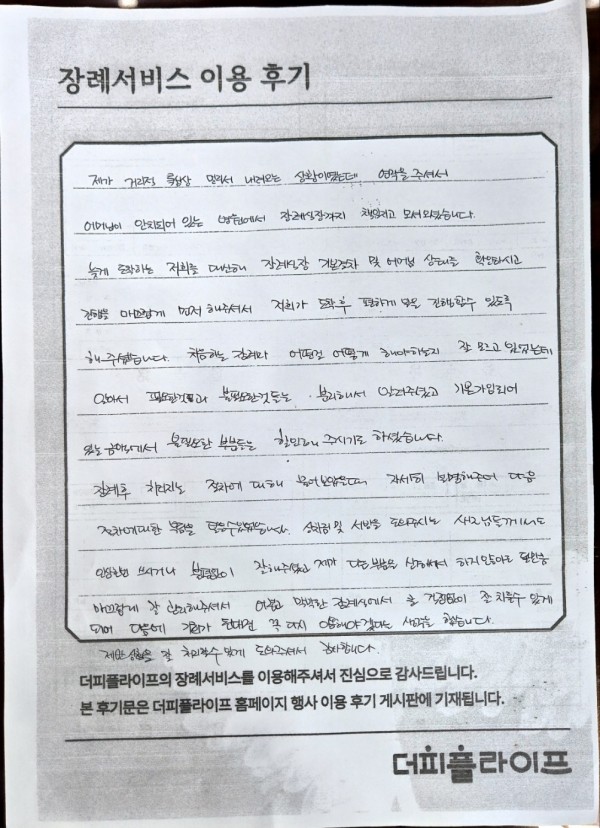 장례서비스 이용 후기
제가 거리적 특성상 멀리서 내려오는 상황이였는데 연락을 주셔서
어머님이 안치되어 있는 병원에서 장례식장까지 책임지고 모셔와주셨습니다.
늦게 도착하는 저희를 대신해 장례식장 기본절차 및 어머님 상태를 확인하시고
진행을 매끄럽게 먼저 해주셔서 저희가 도착후 편하게 모든 진행할수 있도록
해주셨습니다. 처음하는 장례라 어떤걸 어떻게 해야하는지 잘 모르고 있었는데
앞서 필요한것과 불필요한것들은 분리해서 알려주셨고 기존가입되어
있는 금액에서 불필요한 부분들은 할인해 주시기도 하셨습니다.
장례후 처리되는 절차에 대해 물어보았을때 자세히 설명해주어 다음
절차에대한 도움을 받을수있었습니다. 상차림 및 서빙을 도와주시는 분들께서도
불편함없이 잘해주셨고 제가 다른부분을 신경써서 하지않아도 될만큼
매끄럽게 잘 관리해주셔서 어렵고 막막한 장례식에서 큰 걱정없이 잘 치를수 있게
되어 다음에 기회가 된다면 꼭 다시 이용해야겠다는 생각을 했습니다.
잘 치를수 있게 도와주셔서 감사합니다.
더피플라이프의 장례서비스를 이용해주셔서 진심으로 감사드립니다.
본 후기문은 더피플라이프 홈페이지 행사 이용 후기 게시판에 기재됩니다.
더피플라이프